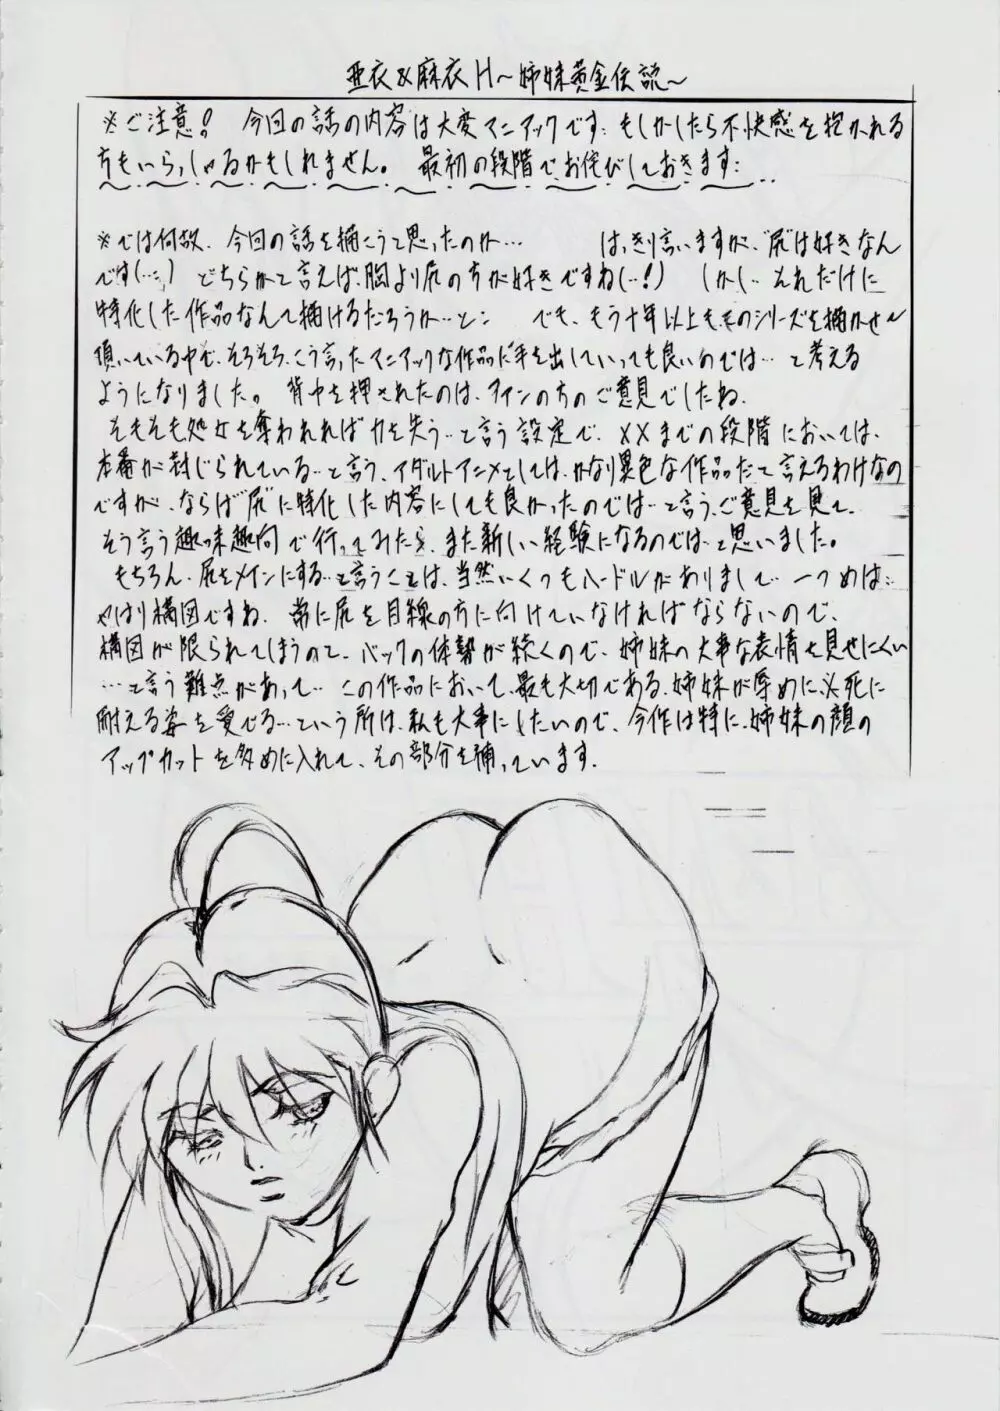 亜衣&麻衣H～姉妹黄金伝説～
※ご注意! 今回の話の内容は大変マニアックです… もしかしたら不快感を抱かれる
方もいらっしゃるかもしれません。 最初の段階でお侘びしておきます…
※では何故、今回の話を描こうと思ったのか… はっきり言いますが、"尻"は好きなん
です(…) どちらかと言えば、胸より尻の方が好きですね(…!) しかし… それだけに
特化した作品なんて描けるだろうか…と… でも、もう十年以上もこのシリーズを描かせて
頂いている中で、そろそろ、こう言ったマニアックな作品に手を出していっても良いのでは… と考える
ようになりました。 背中を押されたのは、ファンの方のご意見でしたね。
そもそも処女を奪われれば力を失う…と言う設定で、XXまでの段階においては、
本番が封じられている…と言う、アダルトアニメとしては、かなり異色な作品だと言えるわけなの
ですが、ならば"尻"に特化した内容にしても良かったのでは…と言う、ご意見を見て、
そう言う趣味趣向で行ってみたら、また新しい経験になるのでは…と思いました。
もちろん、尻をメインにする…と言うことは、当然いくつもハードルがありまして… 一つめは…
やはり構図ですね。 常に尻を目線の方に向けていなければならないので、
構図が限られてしまうので、バックの体勢が続くので、姉妹の大事な表情を見せにくい
…と言う難点があって… この作品において、最も大切である、姉妹が辱めに必死に
耐える姿を愛でる…という所は、私も大事にしたいので、今作は特に、姉妹の顔の
アップカットを多めに入れて、その部分を補っています。